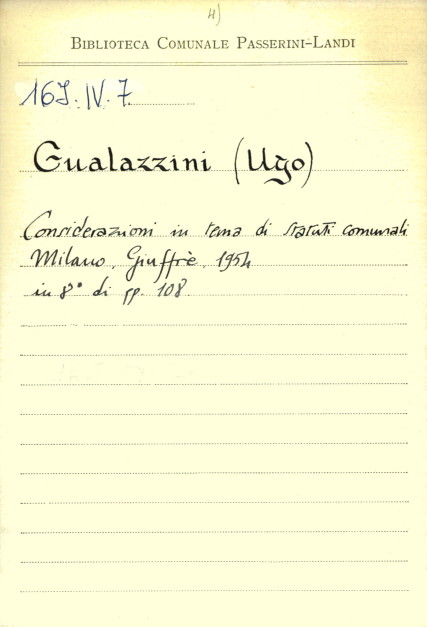 4)
BIBLIOTECA COMUNALE PASSERINI-LANDI
16J.IV.7
Gualazzini (Ugo)
Considerazioni in tema di statuti comunali
Milano, Giuffrè, 1954
in 8° di pp. 108